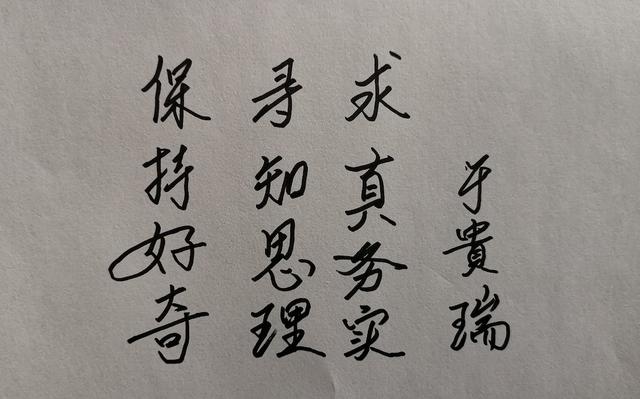 保持好奇
寻知思理
求真务实
于貴瑞